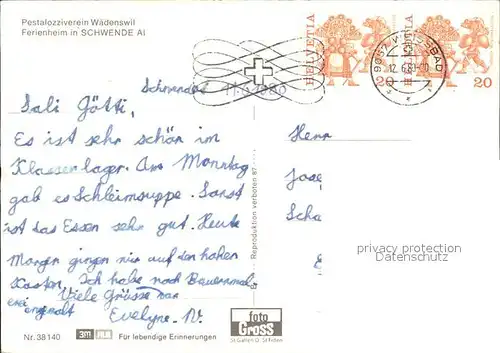 Pestalozziverein Wädenswil
Ferienheim in SCHWENDE AI
HELVETIA 20
HELVETIA 20
9057 BAD
12.6.8
11.6.1980
Sali Götti,
Es ist sehr schön im
Klassenlager. Am Montag
gab es Schleimsuppe. Sonst
ist das Essen sehr gut. Heute
Morgen gingen wir auf den hohen
Kasten. Ich habe noch
Viele Grüsse von
Evelyne. N.
Herr
Reproduktion verboten 67
privacy protection
OldthingShops
Nr. 38140
3m
Für lebendige Erinnerungen
foto
GROSS
St. Gallen